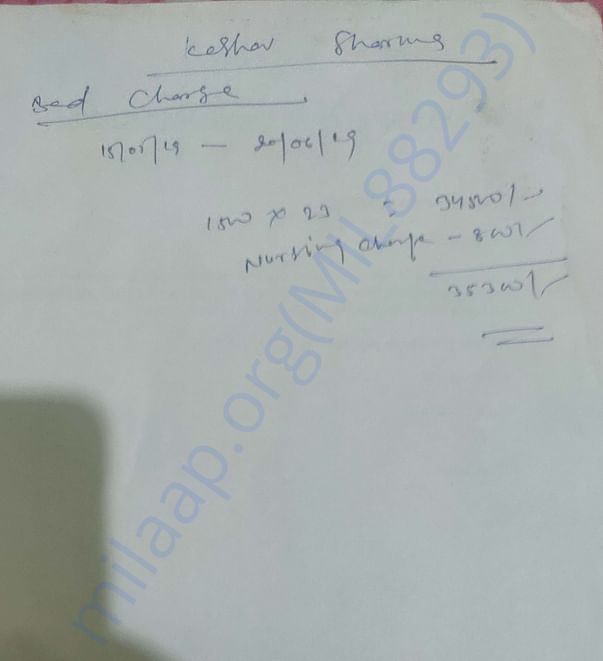 Keshav Sharma
Bed Charge
15/05/19 — 20/06/19
1500 x 23 = 34500/-
Nursing Charge - 800/-
35300/-
milaap.org(MIL88293)